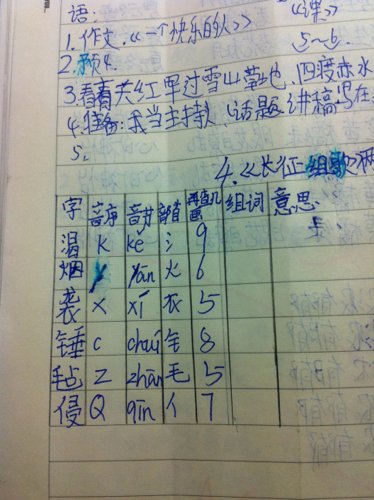 语: 《课》
1.作文.《一个快乐的人》 5~6.
2.预4.
3.看有关红军过雪山草地、四渡赤水
4.准备:我当主持人 话题 讲稿写在
5.
4.《长征组歌》两
字 音序 音节 部首 再查几画 组词 意思
渴 K kě 氵 9
烟 Y yān 火 6
袭 X xí 衣 5
锤 C chuí 钅 8
毡 Z zhān 毛 5
侵 Q qīn 亻 7